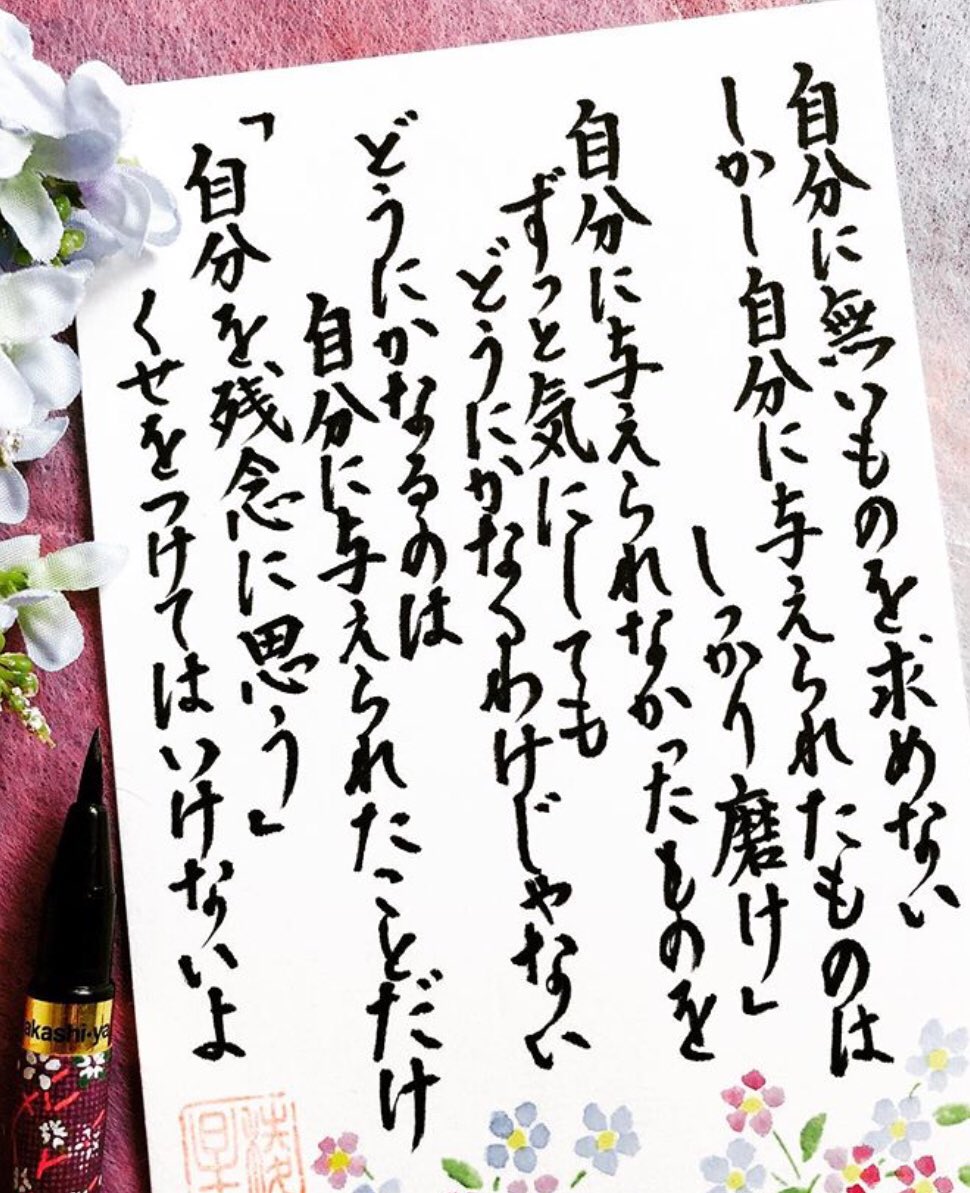 自分に無いものを求めない
しかし自分に与えられたものは
しっかり磨け」
自分に与えられなかったものを
ずっと気にしても
どうにかなるわけじゃない
どうにかなるのは
自分に与えられたことだけ
「自分を、残念に思う」
くせをつけてはいけないよ
akashi・ya